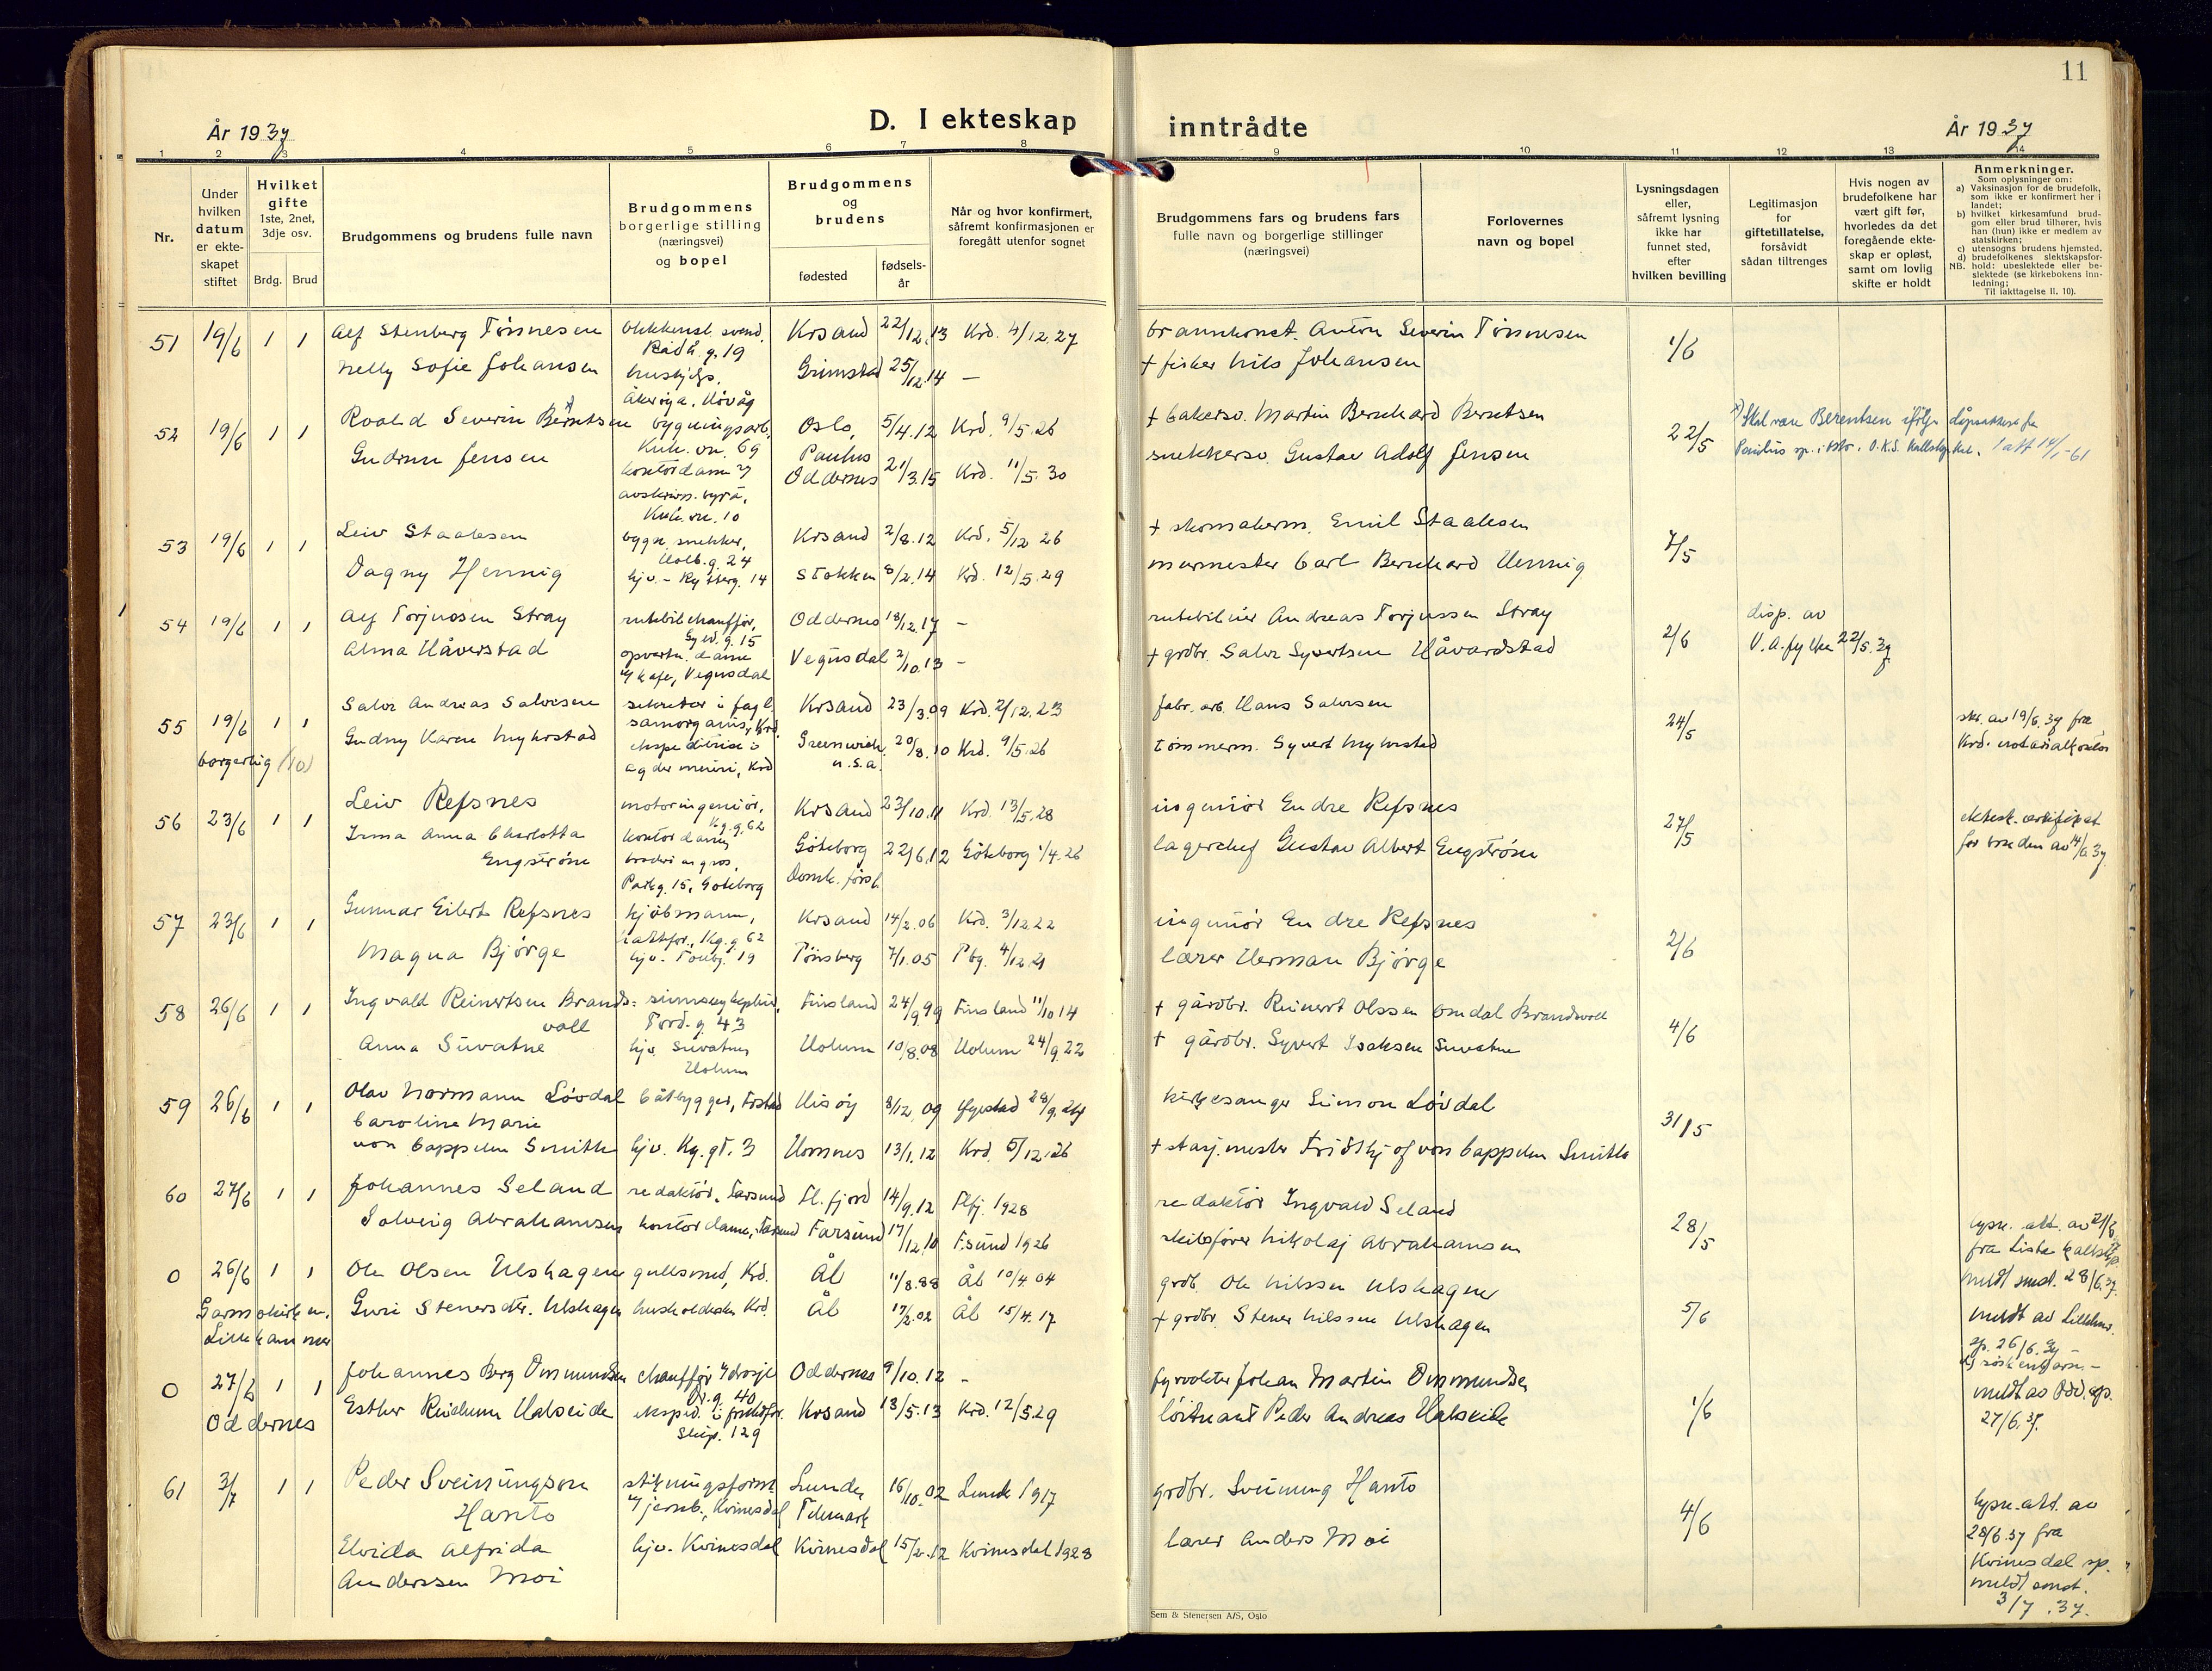 11
År 1937
D. I ekteskap
inntrådte
År 1937
1 2 3 4 5 6 7 8 9 10 11 12 13 14
Nr.
Under hvilken datum er ekteskapet stiftet
Hvilket gifte 1ste, 2net, 3dje osv.
Brdg. Brud
Brudgommens og brudens fulle navn
Brudgommens borgerlige stilling (næringsvei) og bopel
Brudgommens og brudens
fødested
fødsels-år
Når og hvor konfirmert, såfremt konfirmasjonen er foregått utenfor sognet
Brudgommens fars og brudens fars fulle navn og borgerlige stillinger (næringsvei)
Forlovernes navn og bopel
Lysningsdagen eller, såfremt lysning ikke har funnet sted, efter hvilken bevilling
Legitimasjon for giftetillatelse, forsåvidt sådan tiltrenges
Hvis nogen av brudefolkene har vært gift før, hvorledes da det foregående ekteskap er opløst, samt om lovlig skifte er holdt
Anmerkninger.
Som oplysninger om:
a) Vaksinasjon for de brudefolk, som ikke er konfirmert her i landet;
b) hvilket kirkesamfund brudgom eller brud tilhører, hvis han (hun) ikke er medlem av statskirken;
c) utensogns brudens hjemsted.
d) brudefolkenes slektskapsforhold: ubeslektede eller beslektede (se kirkebokens innledning;
NB.
Til iakttagelse II. 10).
51 19/6 1 1 Alf Stenberg Tønnesen Krsand 22/12.13 Krd. 4/12.27 Anton Severin Tønnesen 1/6
Rådh.g. 19
Nelly Sofie Johansen Grimstad 25/12.14 – + fisker Nils Johansen
52 19/6 1 1 Roald Severin Berntsen x) bygningsarb. Oslo, 5/4.12 Krd. 9/5.26 + bakersv. Martin Bernhard Berntsen 22/5
Paulus
Gudrun Jensen kontordame Oddernes 21/3.15 Krd. 11/5.30 snekkersv. Gustav Adolf Jensen
x) Skal være Berentsen ifølge dåpsattest fra
53 19/6 1 1 Leiv Staalesen bygn. snekker, Krsand 2/8.12 Krd. 5/12 26 + skomakerm. Emil Staalesen 7/5
Holb.g. 24
Dagny Hennig hjv. Stokken 8/2.14 Krd. 12/5.29 murmester Carl Bernhard Hennig
54 19/6 1 1 Alf Torjussen Stray rutebilchauffør, Oddernes 18/12.17 – rutebileier Andreas Torjussen Stray 2/6 disp. av
V.A. fylke 22/5.37
Alma Håverstad Vegusdal 2/10.13 – + grdbr. Salve Syvertsen Håvardstad
kafe, Vegusdal
55 19/6 1 1 Salve Andreas Salvesen sekretær i fagl. Krsand 23/3.09 Krd. 2/12.23 fabr. arb. Hans Salvesen 24/5
borgerlig (10)
samorganis., Krd.
Gudny Karen Myhrstad ekspeditrise i Greenwich 20/8.10 Krd. 9/5.26 tømmerm. Syvert Myhrstad
Agder meieri, Krd U.S.A.
skr. av 19/6.37 fra
Krd. notarialkontor
56 23/6 1 1 Leiv Refsnes motoringeniør, Krsand 23/10.11 Krd. 13/5.28 ingeniør Endre Refsnes 27/5
Kg.g. 62
Irma Anna Charlotta kontordame
Engstrøm broderi en gros, Göteborg 22/6.12 Göteborg 1/4.26 lagerchef Gustav Albert Engstrøm
Parkg. 15, Göteborg Domk. förs.
for bruden av 14/6 37
57 23/6 1 1 Gunnar Eilert Refsnes kjøbmann, Krsand 14/2.06 Krd. 3/12.22 ingeniør Endre Refsnes 2/6
Kg.g 62
Magna Bjørge hjv. Tønsberg 7/1.05 Tbg. 4/12.21 lærer Herman Bjørge
58 26/6 1 1 Ingvald Reinertsen Brands= Finsland 24/9.99 Finsland 11/10 14 + gårdbr. Reinert Olssen Omdal Brandsvoll 4/6
voll Tord.g. 43
Anna Suvatne hjv. Suvatne, Holum 10/8.08 Holum 24/9.22 + gårdbr. Syvert Isaksen Suvatne
Holum
59 26/6 1 1 Olav Normann Løvdal båtbygger, Hisøy 8/12.09 kirkesanger Simon Løvdal 31/5
Caroline Marie
von Cappelen Smith hjv. Kg.gt. 3 Hornnes 13/1.12 Krd. 5/12.26 + stasj.mester Fridthjof von Cappelen Smith
60 27/6 1 1 Johannes Seland redaktør, Farsund Fl.fjord 14/9.12 Flfj. 1928 redaktør Ingvald Seland 28/5
Solveig Abrahamsen kontordame, Farsund Farsund 17/12.10 F.sund 1926 skibsfører Nikolaj Abrahamsen
lysn. att. av 21/6
fra Lista
meldt smst. 28/6.37.
0 26/6 1 1 Ole Olsen Ulshagen gullsmed, Krd. Ål 11/8.88 Ål 10/4 04 grdb. Ole Nilssen Ulshagen 5/6
Garmokirken,
Lillehammer
Guri Stenersdtr. Ulshagen Krd. Ål 17/2.02 Ål 15/4.17 + grdbr. Stener Nilssen Ulshagen
meldt av Lilleham.
sp. 26/6.37 –
søskenbarn. –
0 27/6 1 1 Johannes Berg Ommundsen chauffør Oddernes 9/10.12 – fyrvokter Johan Martin Ommundsen 1/6
Oddernes
Dr.g. 40
Esther Reidunn Halseide Krsand 13/5.13 Krd. 12/5.29 løitnant Peder Andreas Halseide
Skip. 129
meldt av Odd. sp.
27/6.37.
61 3/7 1 1 Peder Sveinungson Lunde 16/10.02 Lunde 1917 grdbr. Sveinung Hanto 4/6
Hanto jernb., Kvinesdal Telemark
Elvida Alfrida hjv. Kvinesdal Kvinesdal 15/2.12 Kvinesdal 1928 lærer Anders Moi
Anderssen Moi
lysn. att. av
28/6.37 fra
Kvinesdal sp.
meldt smst.
3/7.37.
Sem & Stenersen A/S, Oslo